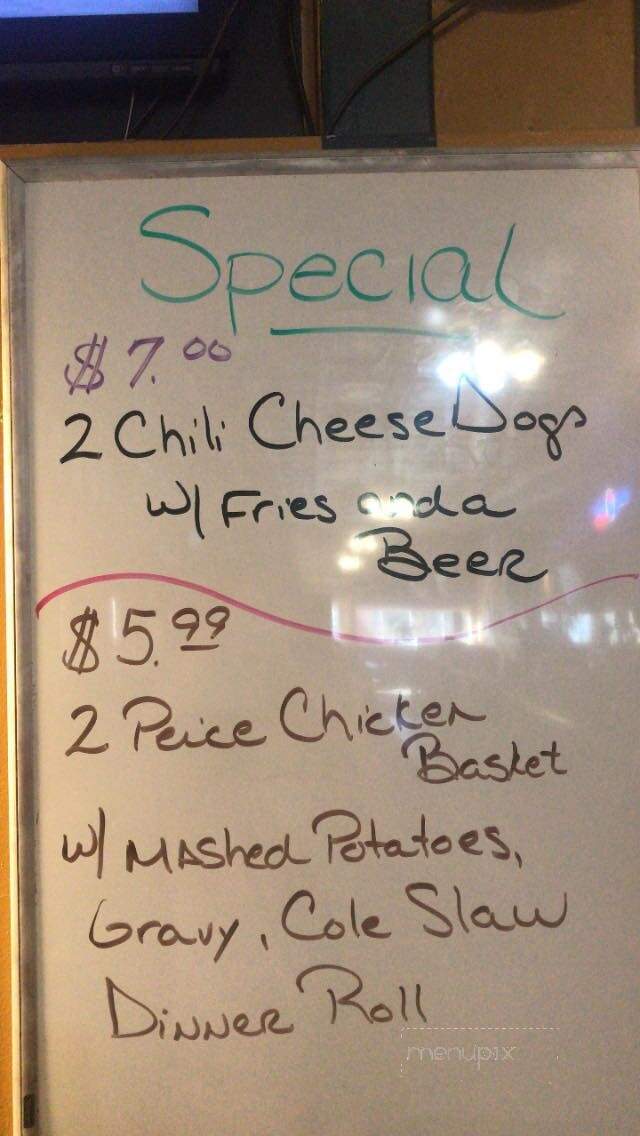 Special
$7.00
2 Chili Cheese Dogs
w/ Fries and a
Beer
$5.99
2 Peice Chicken
Basket
w/ Mashed Potatoes,
Gravy, Cole Slaw
Dinner Roll
menupix